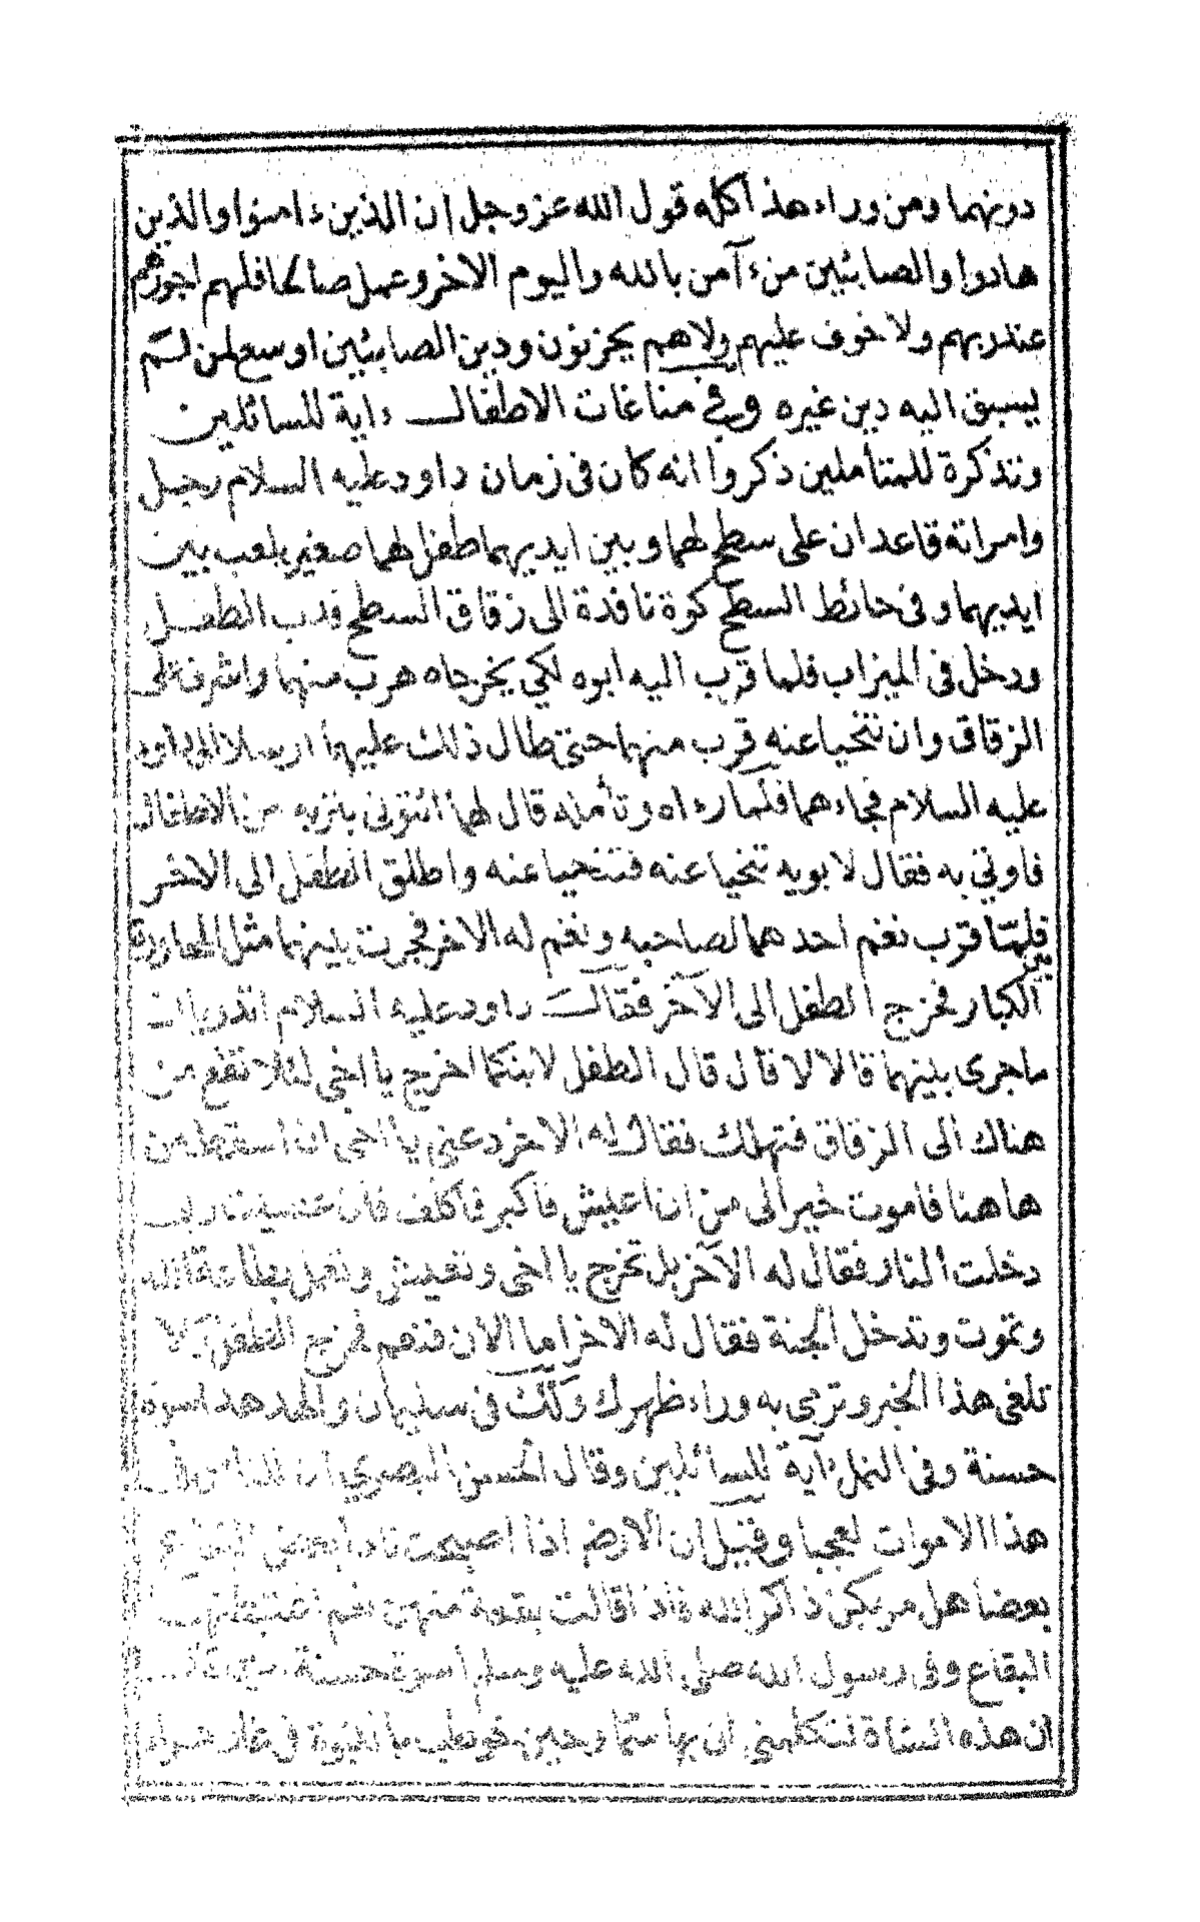 دونهما ومن وراء هذا كله قول الله عز وجل ان الذين ءامنوا والذين
هادوا والصابئين من ءآمن بالله واليوم الاخر وعمل صالحا فلهم اجورهم
عند ربهم ولا خوف عليهم ولا هم يحزنون ودين الصابئين اوسع لمن لم
يسبق اليه دين غيره وفي مناغات الاطفال ءاية للسائلين
وتذكرة للمتأملين ذكروا انه كان في زمان داود عليه السلام رجل
وامراته قاعدان على سطح لهما وبين ايديهما طفل لهما صغير يلعب بين
ايديهما وفي حائط السطح كوة نافذة الى زقاق السطح فدب الطفل
ودخل في الميزاب فلما قرب اليه ابوه لكي يخرجاه هرب منهما واشرف على
الزقاق وان تنحيا عنه قرب منهما حتى طال ذلك عليهما ارسلا الى داود
عليه السلام فجاءهما فلما رءاه وتأمله قال لهما ائتوني بتربه من الاطفال
فاوتي به فقال لابويه تنحيا عنه فتنحيا عنه واطلق الطفل الى الاخر
فلما قرب نغم احدهما لصاحبه ونغم له الاخر فجرت بينهما مثل المحاورة
من
الكبار فخرج الطفل الى الآخر فقال داود عليه السلام اتدريان
ما جرى بينهما قالا لا قال قال الطفل لابنكما اخرج يا اخي لئلا تقع من
هناك الى الزقاق فتهلك فقال له الاخر دعني يا اخي ان اسقط من
هاهنا فاموت خير الي من ان اعيش فاكبر فاكلف فان عصيت ربي
دخلت النار فقال له الآخر بل تخرج يا اخي وتعيش وتعمل بطاعة الله
وتموت وتدخل الجنة فقال له الاخر اما الان فنعم فخرج الطفل لا
تلغي هذا الخبر وترمي به وراء ظهرك ولك في سليمان والهدهد اسوة
حسنة وفي النمل ءآية للسائلين وقال الحسن البصري ان للناس في
هذا الاموات لعجبا وقيل ان الارض اذا اصبحت نادا بعض البقاع
بعضا هل مر بكن ذاكر الله فاذا قالت بقعة منهن نعم اغتبطتها
البقاع وفي رسول الله صلى الله عليه وسلم أسوة حسنة
ان هذه الشاة لتكلمني ان بها سما وحين خوطب بالنبوة في غار حراء